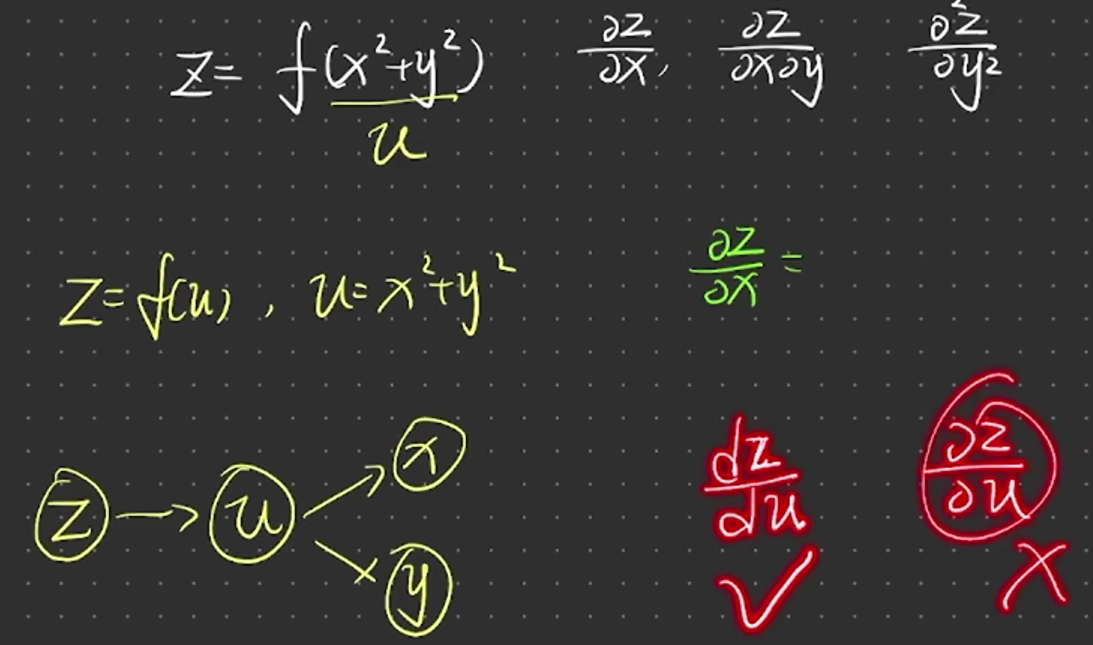 z = f(x²+y²) ∂z/∂x, ∂z/∂x∂y ∂²z/∂y²
u
z = f(u), u = x²+y² ∂z/∂x =
z → u → x
y
dz/du ∂z/∂u
✓ ×